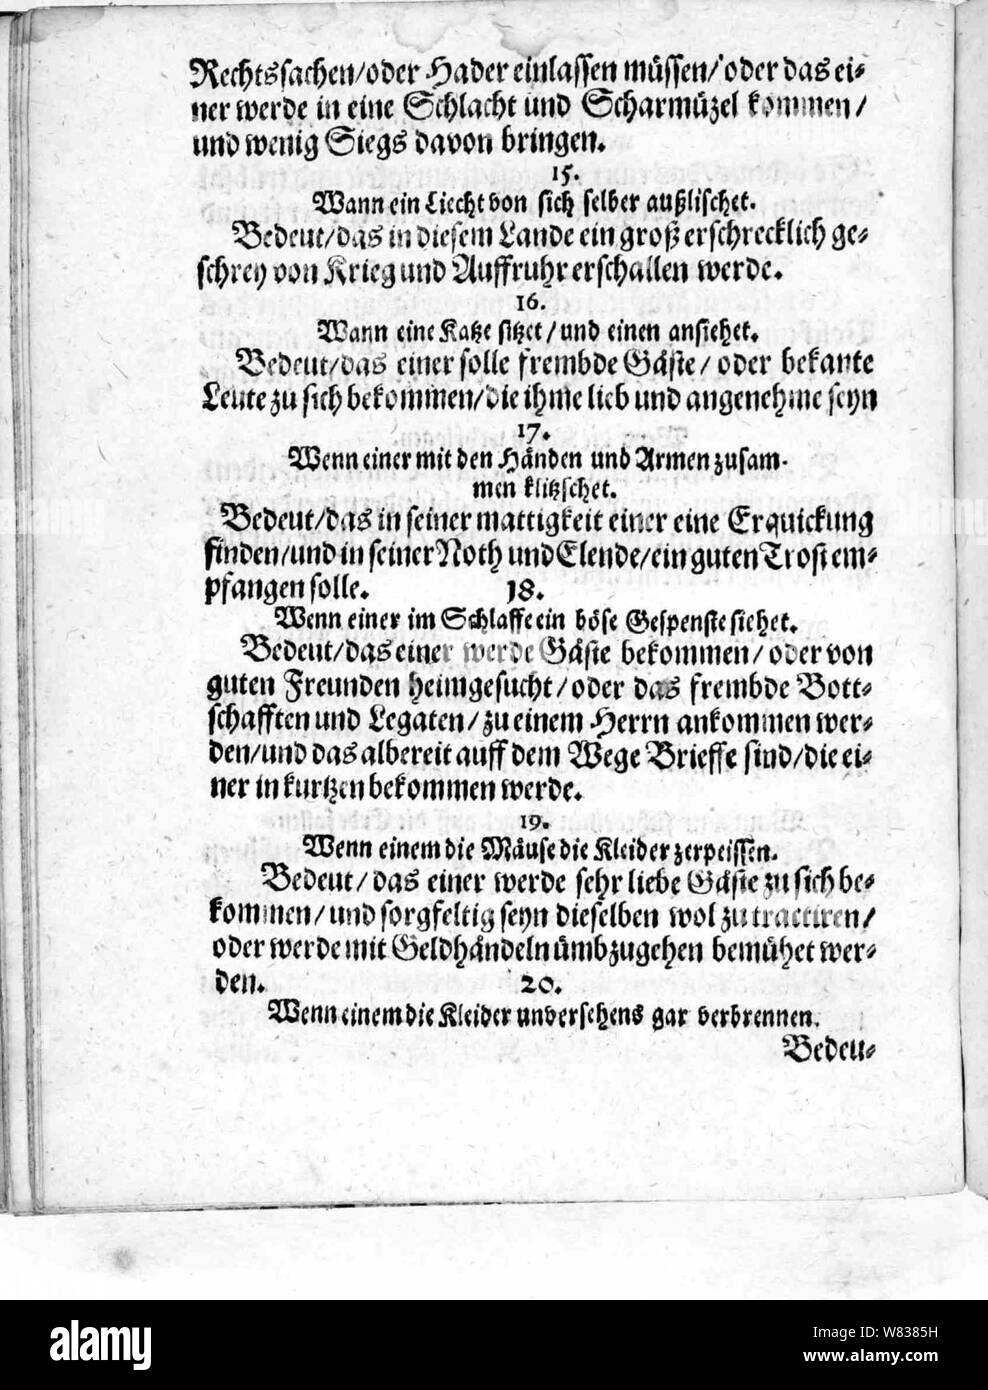 Rechtssachen/oder Hader einlassen müssen/oder das ei-
ner werde in eine Schlacht und Scharmüzel kommen/
und wenig Siegs davon bringen.
15.
Wann ein Liecht von sich selber außlischet.
Bedeut/das in diesem Lande ein groß erschrecklich ge-
schrey von Krieg und Auffruhr erschallen werde.
16.
Wann eine Katze sitzet/und einen ansiehet.
Bedeut/das einer solle frembde Gäste/oder bekante
Leute zu sich bekommen/die ihme lieb und angenehme seyn
17.
Wenn einer mit den Händen und Armen zusam-
men klitzschet.
Bedeut/das in seiner mattigkeit einer eine Erquickung
finden/und in seiner Noth und Elende/ein guten Trost em-
pfangen solle. 18.
Wenn einer im Schlaffe ein böse Gespenste siehet.
Bedeut/das einer werde Gäste bekommen/oder von
guten Freunden heimgesucht/oder das frembde Bott-
schafften und Legaten/zu einem Herrn ankommen wer-
den/und das albereit auff dem Wege Brieffe sind/die ei-
ner in kurtzen bekommen werde.
19.
Wenn einem die Mäuse die Kleider zerpeissen.
Bedeut/das einer werde sehr liebe Gäste zu sich be-
kommen/und sorgfeltig seyn dieselben wol zu tractiren/
oder werde mit Geldhändeln ümbzugehen bemühet wer-
den. 20.
Wenn einem die Kleider unversehens gar verbrennen.
Bedeu-
alamy
Image ID: W8385H
www.alamy.com